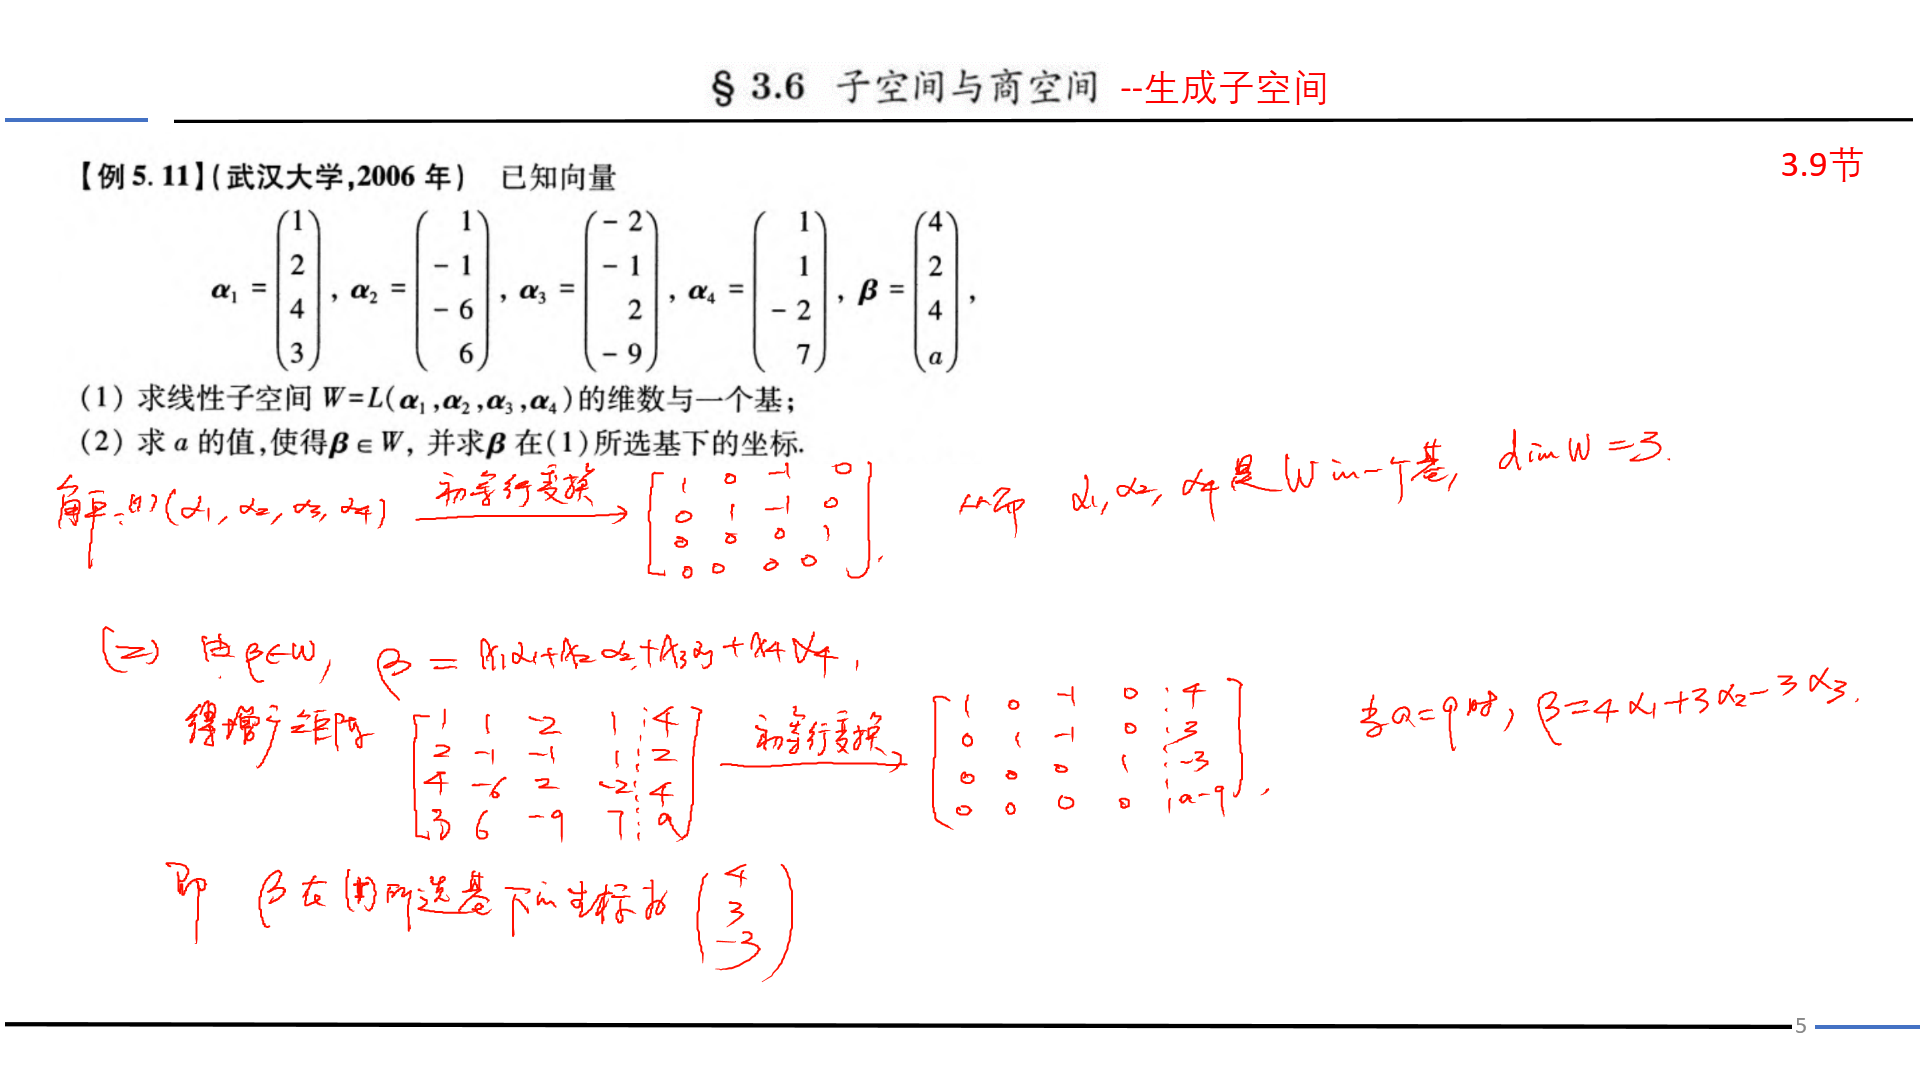 § 3.6 子空间与商空间 --生成子空间
3.9节
【例 5.11】(武汉大学,2006 年) 已知向量
α₁ = (1 2 4 3), α₂ = (1 -1 -6 6), α₃ = (-2 -1 2 -9), α₄ = (1 1 -2 7), β = (4 2 4 a),
(1) 求线性子空间 W=L(α₁,α₂,α₃,α₄)的维数与一个基;
(2) 求 a 的值,使得β∈W, 并求β 在(1)所选基下的坐标.
解:(1) (α₁, α₂, α₃, α₄) 初等行变换 →
1 0 -1 0
0 1 -1 0
0 0 0 1
0 0 0 0
从而 α₁, α₂, α₄是W的一个基, dimW=3.
(2) 由β∈W, β = x₁α₁+x₂α₂+x₃α₃+x₄α₄,
得增广矩阵
1 1 -2 1 4
2 -1 -1 1 2
4 -6 2 -2 4
3 6 -9 7 a
初等行变换 →
1 0 -1 0 4
0 1 -1 0 3
0 0 0 1 -3
0 0 0 0 a-9
当a=9时, β=4α₁+3α₂-3α₃.
即 β在(1)所选基下的坐标为 (4 3 -3)
5